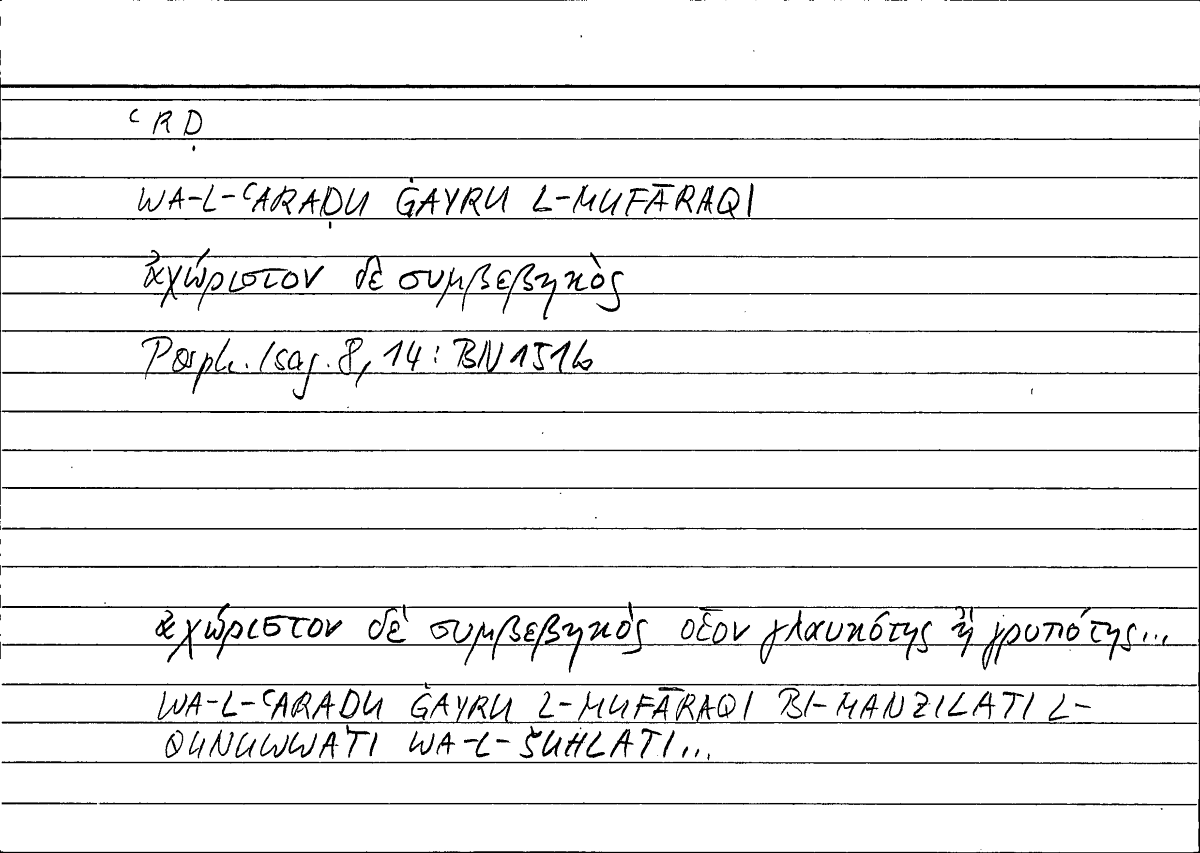 ʿRḌ
WA-L-ʿARAḌU ĠAYRU L-MUFĀRAQI
ἀχώριστον δὲ συμβεβηκὸς
Porph. Isag. 8, 14 : BN 151b
ἀχώριστον δὲ συμβεβηκὸς οἷον γλαυκότης ἢ γρυπότης...
WA-L-ʿARAḌU ĠAYRU L-MUFĀRAQI BI-MANZILATI L-
QUNUWWATI WA-L-ŠUHLATI...